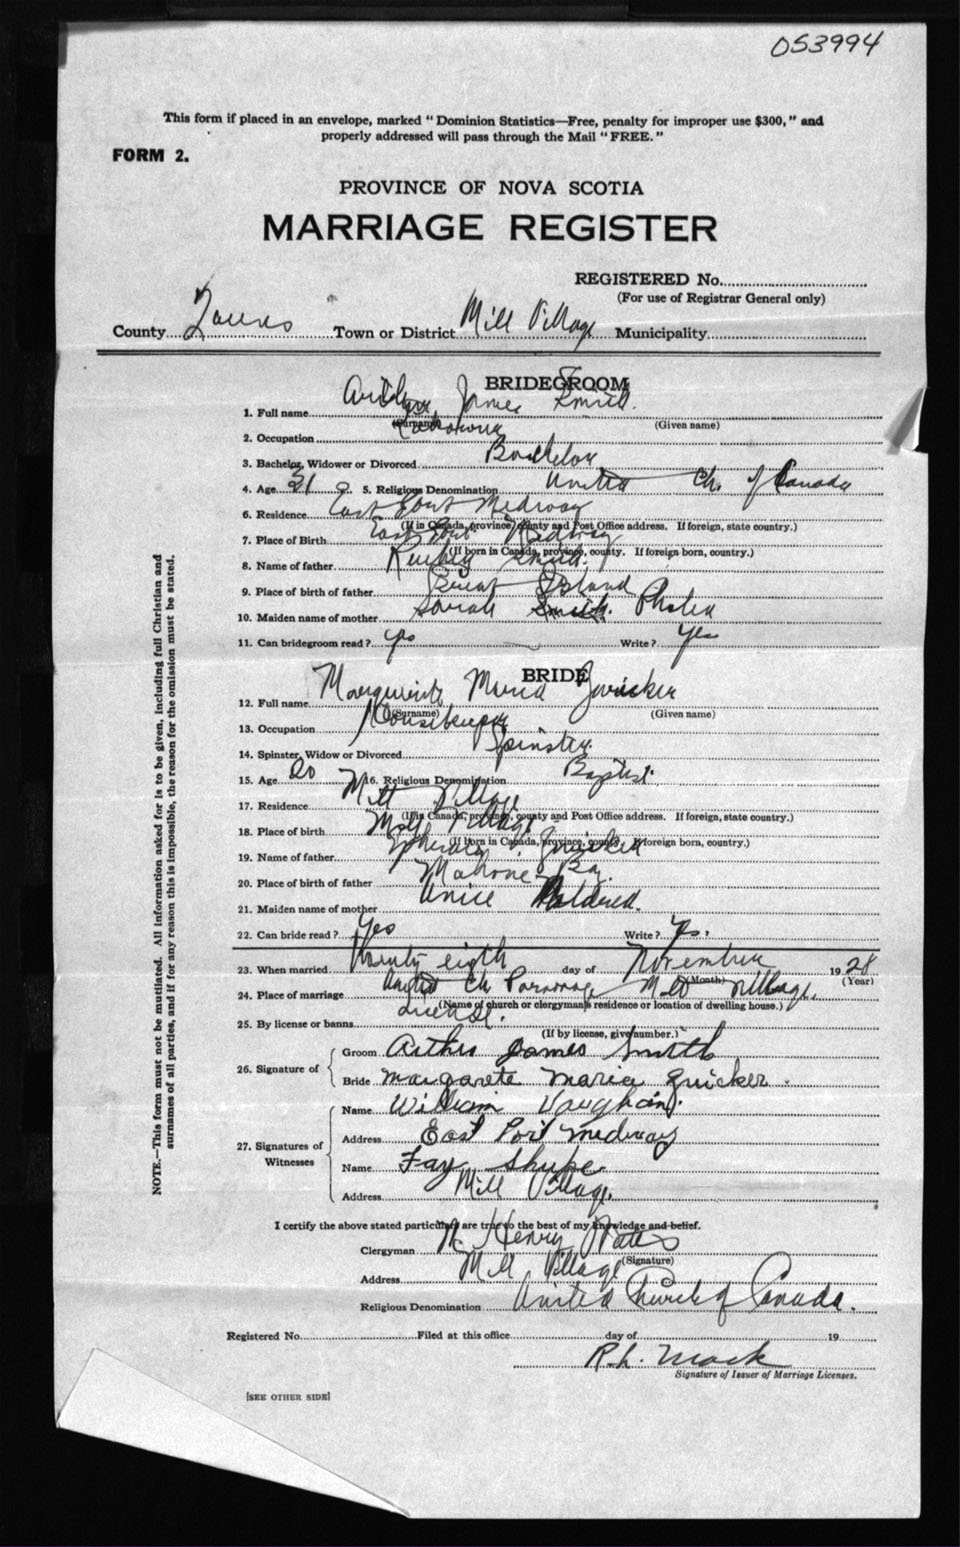 053994
This form if placed in an envelope, marked "Dominion Statistics—Free, penalty for improper use $300," and
properly addressed will pass through the Mail "FREE."
FORM 2.
PROVINCE OF NOVA SCOTIA
MARRIAGE REGISTER
REGISTERED No.
(For use of Registrar General only)
County Queens Town or District Mill Village Municipality
BRIDEGROOM
1. Full name James Smith
(Surname) (Given name)
2. Occupation
3. Bachelor, Widower or Divorced Bachelor
4. Age 31 5. Religious Denomination United Ch. of Canada
6. Residence East Port Medway
(If in Canada, province, county and Post Office address. If foreign, state country.)
7. Place of Birth East Port Medway
(If born in Canada, province, county. If foreign born, country.)
8. Name of father Smith.
9. Place of birth of father Island
10. Maiden name of mother Sarah Smith.
11. Can bridegroom read? yes Write? Yes
BRIDE
12. Full name
(Surname) (Given name)
13. Occupation Housekeeper
14. Spinster, Widow or Divorced Spinster.
15. Age 20 16. Religious Denomination Baptist.
17. Residence Mill Village
(If in Canada, province, county and Post Office address. If foreign, state country.)
18. Place of birth Mill Village
(If born in Canada, province, county. If foreign born, country.)
19. Name of father
20. Place of birth of father Mahone Bay.
21. Maiden name of mother
22. Can bride read? Yes Write? Yes.
23. When married day of November 1928
(Month) (Year)
24. Place of marriage Ch Parsonage Mill Village.
(Name of church or clergyman's residence or location of dwelling house.)
25. By license or banns License.
(If by license, give number.)
26. Signature of
Groom James Smith
Bride Margarete Maria
27. Signatures of Witnesses
Name William Vaughan.
Address East Port Medway
Name Fay Shupe
Address Mill Village.
I certify the above stated particulars are true to the best of my knowledge and belief.
Clergyman Henry
(Signature)
Address Mill Village
Religious Denomination United Church of Canada.
Registered No. Filed at this office day of 19
R. L. Mack
Signature of Issuer of Marriage Licenses.
[SEE OTHER SIDE]
NOTE.—This form must not be mutilated. All information asked for is to be given, including full Christian and
surnames of all parties, and if for any reason this is impossible, the reason for the omission must be stated.